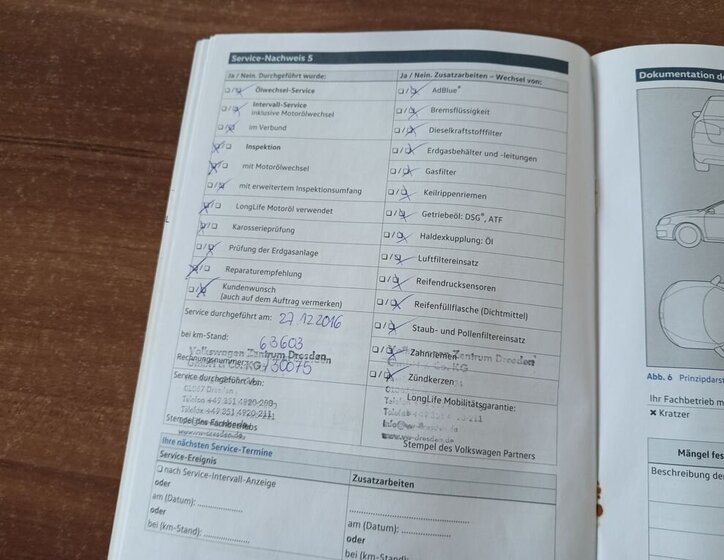 Service-Nachweis 5
Ja / Nein. Durchgeführt wurde:
Ölwechsel-Service
Intervall-Service
inklusive Motorölwechsel
im Verbund
Inspektion
mit Motorölwechsel
mit erweitertem Inspektionsumfang
LongLife Motoröl verwendet
Karosserieprüfung
Prüfung der Erdgasanlage
Reparaturempfehlung
Kundenwunsch
(auch auf dem Auftrag vermerken)
Service durchgeführt am: 27.12.2016
bei km-Stand: 63603
Volkswagen Zentrum Dresden
Rechnungsnummer: 730075
Service durchgeführt von:
Stempel des Fachbetriebs
Ja / Nein. Zusatzarbeiten – Wechsel von:
AdBlue®
Bremsflüssigkeit
Dieselkraftstofffilter
Erdgasbehälter und -leitungen
Gasfilter
Keilrippenriemen
Getriebeöl: DSG®, ATF
Haldexkupplung: Öl
Luftfiltereinsatz
Reifendrucksensoren
Reifenfüllflasche (Dichtmittel)
Staub- und Pollenfiltereinsatz
Zahnriemen
Zentrum Dresden
Co. KG
Zündkerzen
LongLife Mobilitätsgarantie:
www.vw-dresden.de
Stempel des Volkswagen Partners
Ihre nächsten Service-Termine
Service-Ereignis
nach Service-Intervall-Anzeige
oder
am (Datum):
oder
bei (km-Stand):
Zusatzarbeiten
am (Datum):
oder
bei (km-Stand):
Dokumentation de
Abb. 6 Prinzipdarst
Ihr Fachbetrieb m
✖ Kratzer
Mängel fes
Beschreibung der